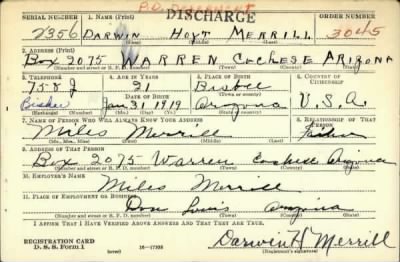 P.O. DISCHARGE
SERIAL NUMBER 1. NAME (Print) ORDER NUMBER
2356 DARWIN HOYT MERRILL 3045
(First) (Middle) (Last)
2. ADDRESS (Print)
Box 2075 WARREN Cochese ARIZONA
(Number and street or R. F. D. number) (Town) (County) (State)
3. TELEPHONE 4. AGE IN YEARS 5. PLACE OF BIRTH 6. COUNTRY OF CITIZENSHIP
758 J 21 Bisbee
DATE OF BIRTH (Town or county)
Bisbee Jan 31 1919 Arizona U.S.A.
(Exchange) (Number) (Mo.) (Day) (Yr.) (State or country)
7. NAME OF PERSON WHO WILL ALWAYS KNOW YOUR ADDRESS 8. RELATIONSHIP OF THAT PERSON
Miles Merrill Father
(Mr., Mrs., Miss) (First) (Middle) (Last)
9. ADDRESS OF THAT PERSON
Box 2075 Warren Cochese Arizona
(Number and street or R. F. D. number) (Town) (County) (State)
10. EMPLOYER'S NAME
Miles Merrill
11. PLACE OF EMPLOYMENT OR BUSINESS
Don Louis Arizona
(Number and street or R. F. D. number) (Town) (County) (State)
I AFFIRM THAT I HAVE VERIFIED ABOVE ANSWERS AND THAT THEY ARE TRUE.
REGISTRATION CARD
D. S. S. Form 1 16-17105 Darwin H Merrill